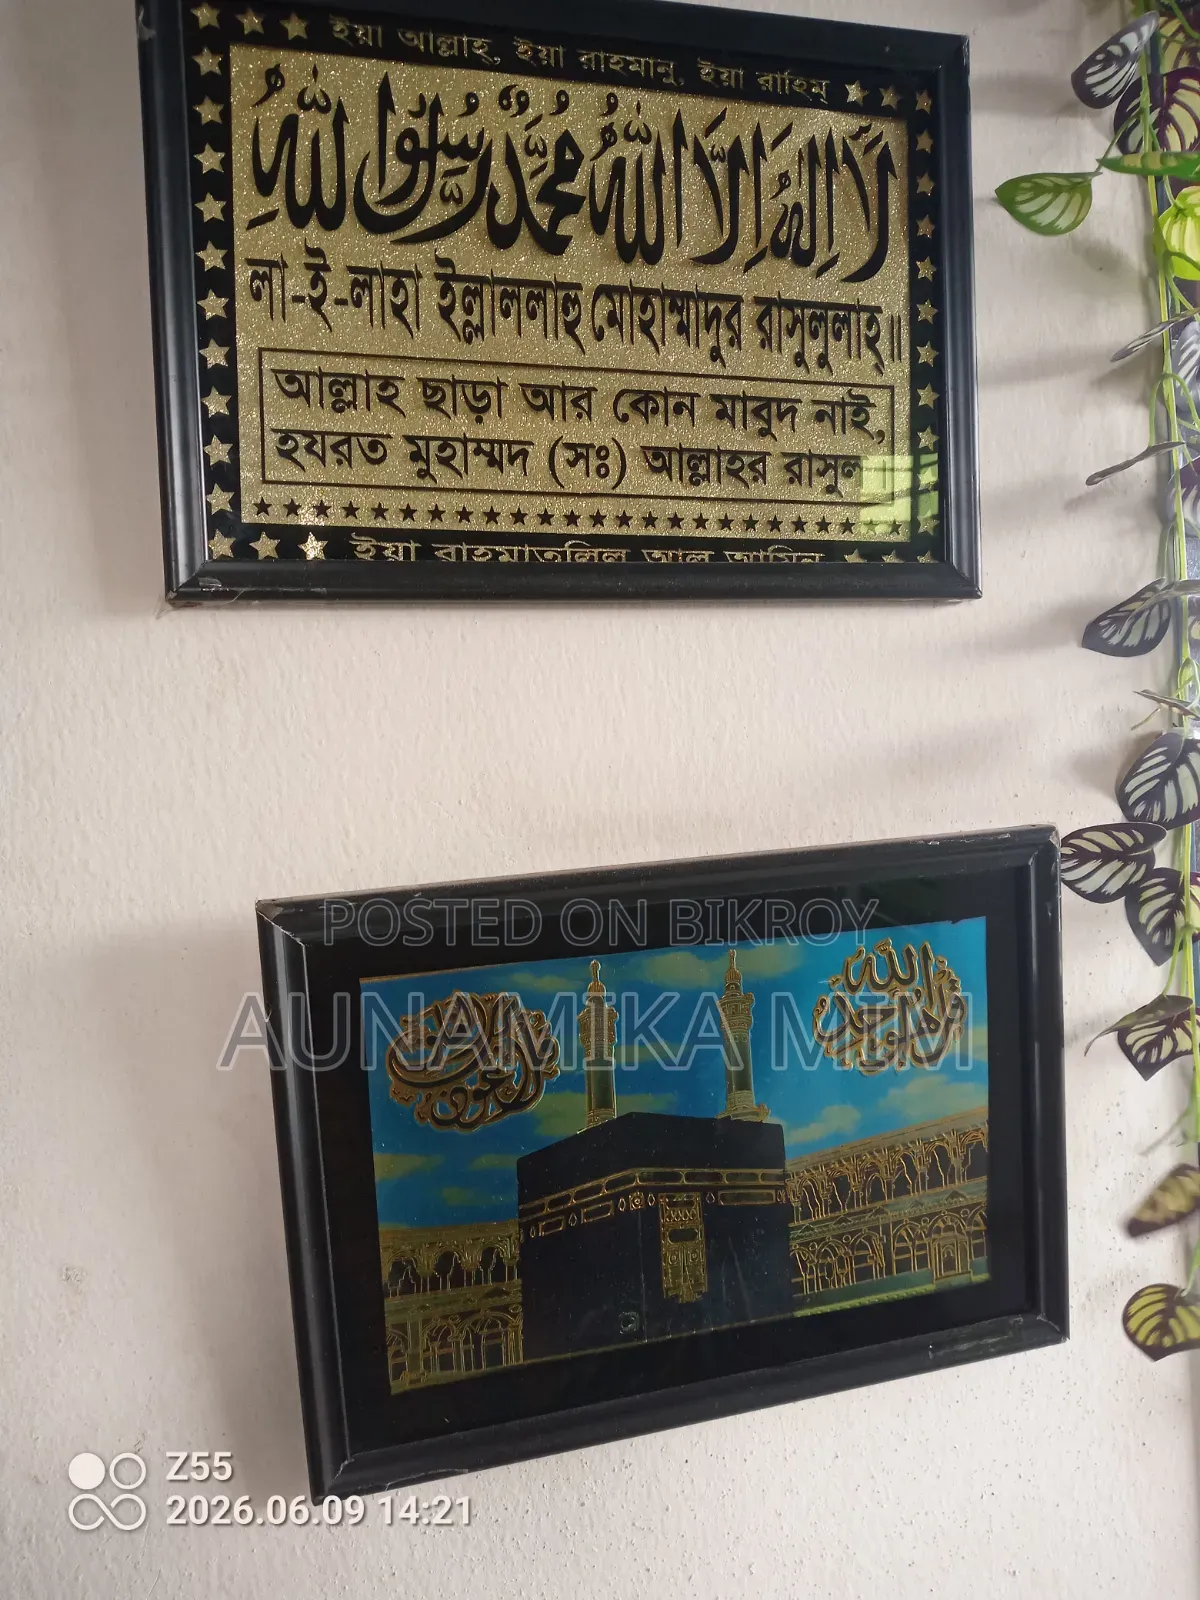 ইয়া আল্লাহ্, ইয়া রাহমানু, ইয়া রাহিম্
لَا إِلٰهَ إِلَّا اللهُ مُحَمَّدٌ رَسُوْلُ اللهِ
লা-ই-লাহা ইল্লাললাহু মোহাম্মাদুর রাসুলুলাহ্॥
আল্লাহ ছাড়া আর কোন মাবুদ নাই,
হযরত মুহাম্মদ (সঃ) আল্লাহর রাসুল
ইয়া রাহমাতুললিল আল আমিন
POSTED ON BIKROY
AUNAMIKA MIM
قل هو الله احد
Z55
2026.06.09 14:21